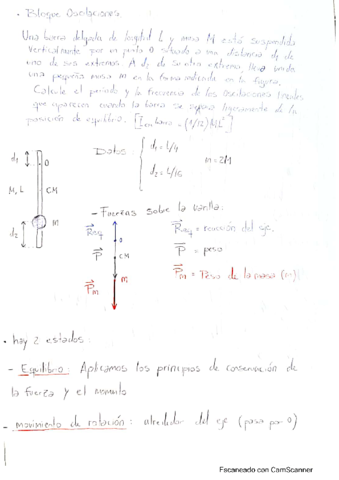 • Bloque Oscilaciones.
Una barra delgada de longitud L y masa M está suspendida
verticalmente por un punto O situado a una distancia d₁ de
uno de sus extremos. A d₂ de su otro extremo, lleva unida
una pequeña masa m en la forma indicada en la figura.
Calcule el periodo y la frecuencia de las oscilaciones
que aparecen cuando la barra se separa ligeramente de la
posición de equilibrio. [I barra = (1/12) ML²]
Datos: d₁ = L/4 m = 2M
d₂ = L/16
d₁ O
M, L CM
m
d₂
- Fuerzas sobre la varilla:
R⃗eq R⃗eq = reacción del eje.
O
P⃗ CM P⃗ = peso
m
P⃗m P⃗m = Peso de la masa (m)
• hay 2 estados:
- Equilibrio: Aplicamos los principios de conservación de
la fuerza y el momento
- movimiento de rotación: alrededor del eje (pasa por O)
Escaneado con CamScanner